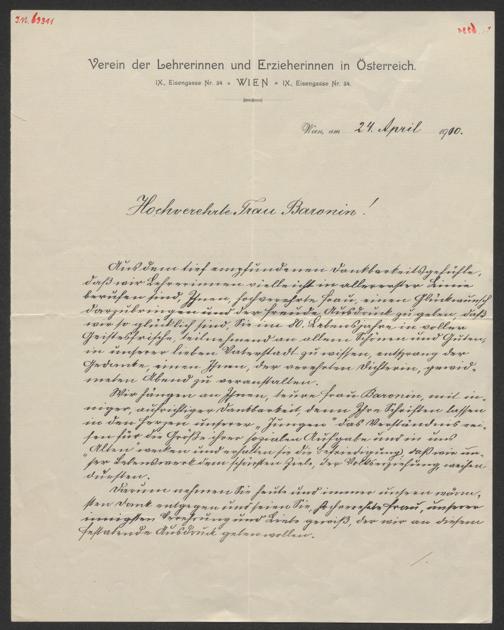 J.N. 63311
Verein der Lehrerinnen und Erzieherinnen in Österreich.
IX., Eisengasse Nr. 34 • WIEN • IX., Eisengasse Nr. 34.
Wien, am 24. April 1910.
Hochverehrte Frau Baronin!
Aus dem tief empfundenen Dankbarkeitsgefühle,
daß wir Lehrerinnen vielleicht in allererster Linie
berufen sind, Ihnen, hochverehrte Frau, einen Glückwunsch
darzubringen und der Freude Ausdruck zu geben, daß
wir so glücklich sind, Sie im 80. Lebensjahre in voller
Geistesfrische, teilnehmend an allem Schönen und Guten,
in unserer lieben Vaterstadt zu wissen, entsprang der
Gedanke, einen Ihnen, der verehrten Dichterin, gewid-
meten Abend zu veranstalten.
Wir hängen an Ihnen, teure Frau Baronin, mit in-
niger, aufrichtiger Dankbarkeit, denn Ihre Schriften lassen
in den Herzen unserer „Jungen" das Verständnis rei-
fen für die Größe ihrer sozialen Aufgabe und in uns
„Alten" wecken und erhalten sie die Befriedigung, daß wir un-
ser Lebenswerk dem schönsten Ziele, der Volkserziehung weihen
durften.
Darum nehmen Sie heute und immer unsern wärm-
sten Dank entgegen und seien Sie, hochverehrte Frau, unserer
innigsten Verehrung und Liebe gewiß, der wir an diesem
Festabende Ausdruck geben wollen.
./.